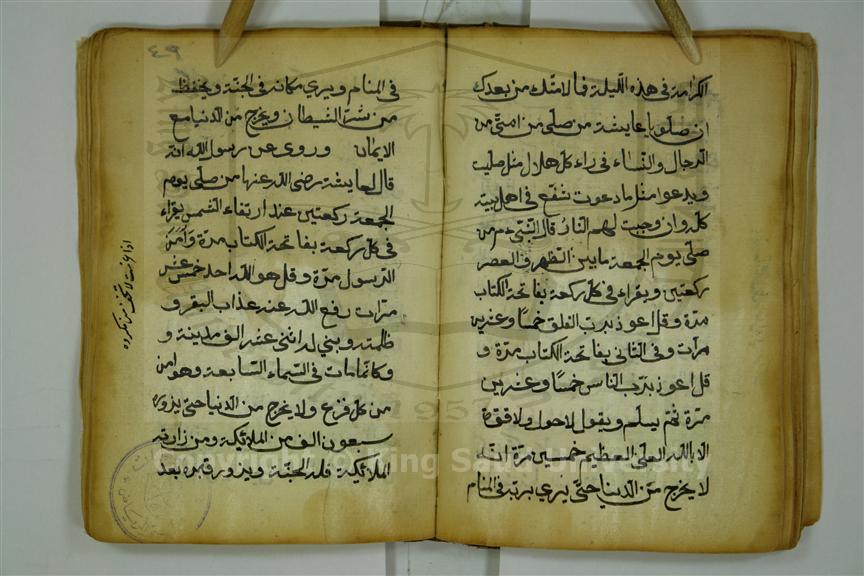 الكرامة فى هذه الليلة فما لامتك من بعدك
ان صلوا يا عايشة من صلى من امتى من
الرجال والنساء فى راء كل هلال مثل صليت
ويدعوا مثل ما دعوت شفع فى اهل بيته
كله وان وجبت لهم النار قال النبى من
صلى يوم الجمعة مابين الظهر والعصر
ركعتين ويقراء فى كل ركعة بفاتحة الكتاب
مرة وقل اعوذ برب الفلق خمسا وعشرين
مرات وفى الثانى بفاتحة الكتاب مرة و
قل اعوذ برب الناس خمسا وعشرين
مرة ثم يسلم ويقول لاحول ولا قوة
الا بالله العلى العظيم خمسين مرة انه
لا يخرج من الدنيا حتى يرى بربه فى المنام
٤٩
فى المنام ويرى مكانه فى الجنة ويحفظ
من شر الشيطان ويخرج من الدنيا مع
الايمان وروى عن رسول الله انه
قال لعايشة رضى الله عنها من صلى يوم
الجمعة ركعتين عند ارتفاء الشمس يقراء
فى كل ركعة بفاتحة الكتاب مرة وآمن
الرسول مرة وقل هو الله احد خمس عشر
مرات رفع الله عنه عذاب القبر و
ظلمته وبنى له اثنى عشر الف مدينة و
وكانما مات فى السماء السابعة وهو امن
من كل فزع ولا يخرج من الدنيا حتى يزوره
سبعون الف من الملائكة ومن زارته
الملائكة فله الجنة ويزور قبره بعد
Copyright © King Saud University
1957